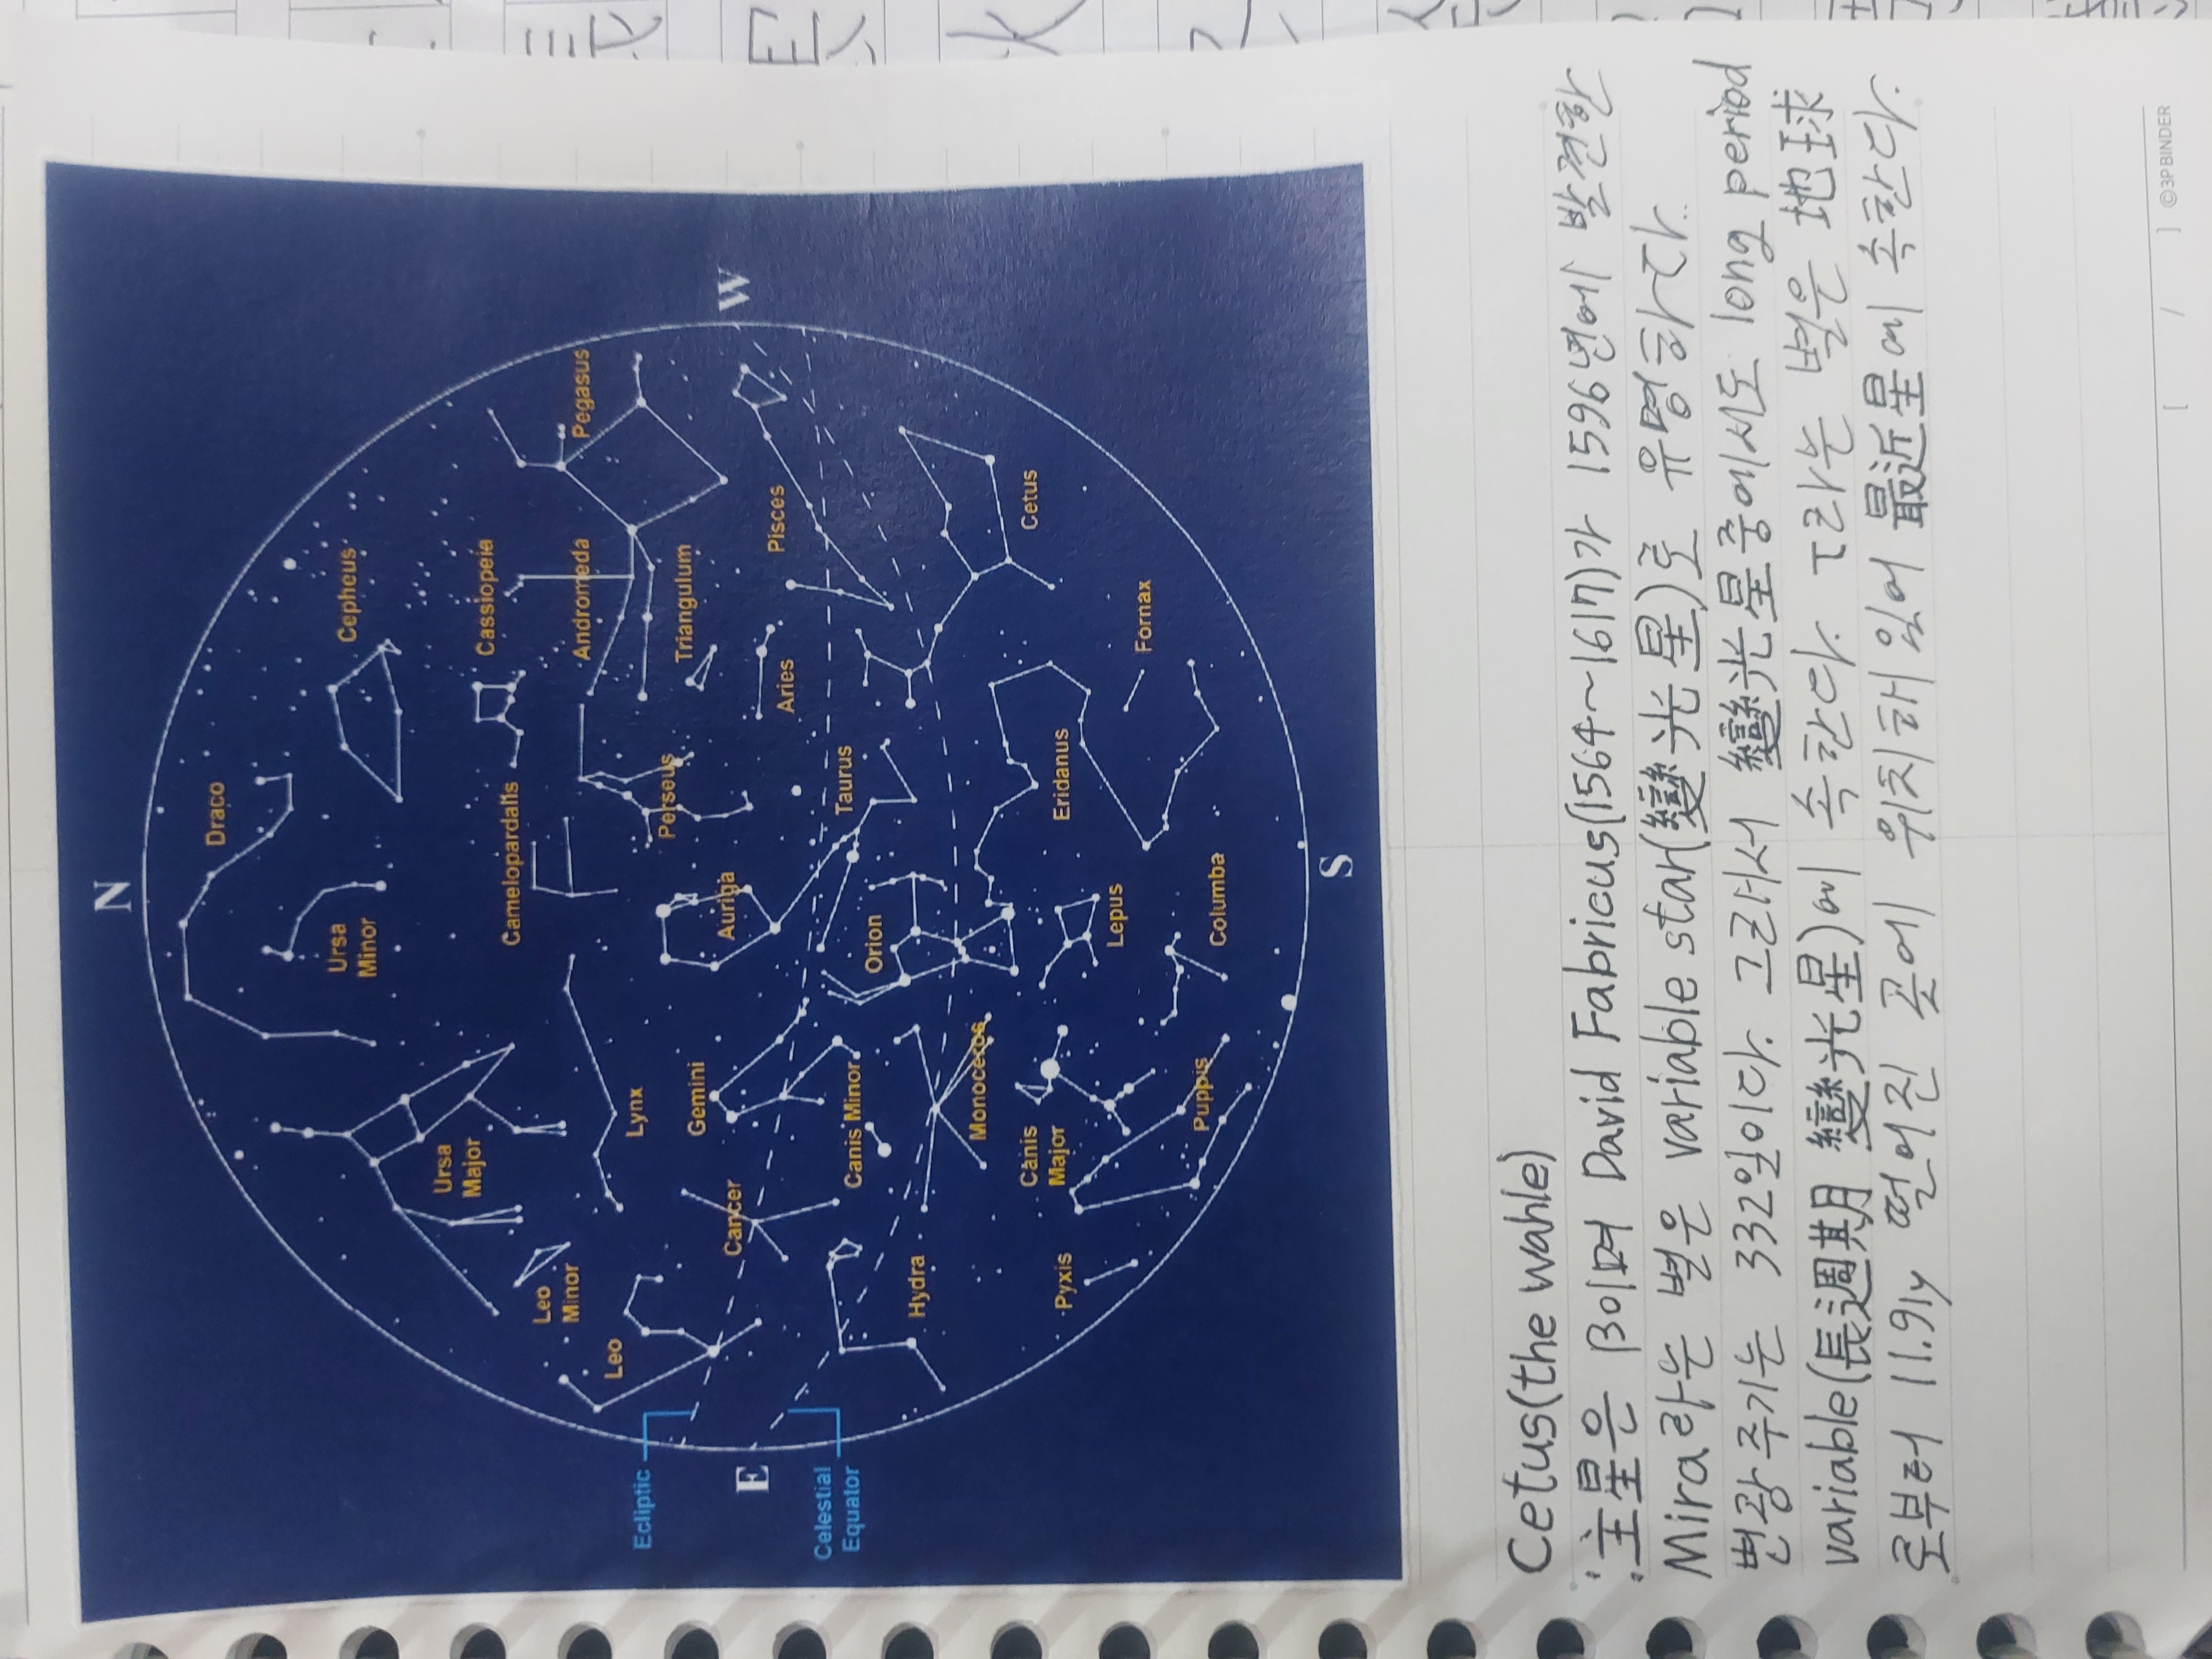 N
Draco
Ursa
Minor
Cepheus
Ursa
Major
Camelopardalis
Cassiopeia
Leo
Minor
Lynx
Andromeda
Pegasus
Leo
Perseus
Triangulum
Ecliptic
Gemini
Auriga
E
W
Cancer
Aries
Pisces
Celestial
Equator
Canis Minor
Orion
Taurus
Hydra
Monoceros
Cetus
Canis
Major
Lepus
Eridanus
Pyxis
Puppis
Columba
Fornax
S
Cetus(the wahle)
:主星은 β이며 David Fabricus(1564~1617)가 1596년에 발견한
Mira라는 별은 variable star(變光星)로 유명하다.
변광주기는 332일이다. 그래서 變光星중에서도 long period
variable(長週期 變光星)에 속한다. τ라는 별은 地球
로부터 11.9ly 떨어진 곳에 위치해 있어 最近星에 속한다.
[ / ] ©3P BINDER